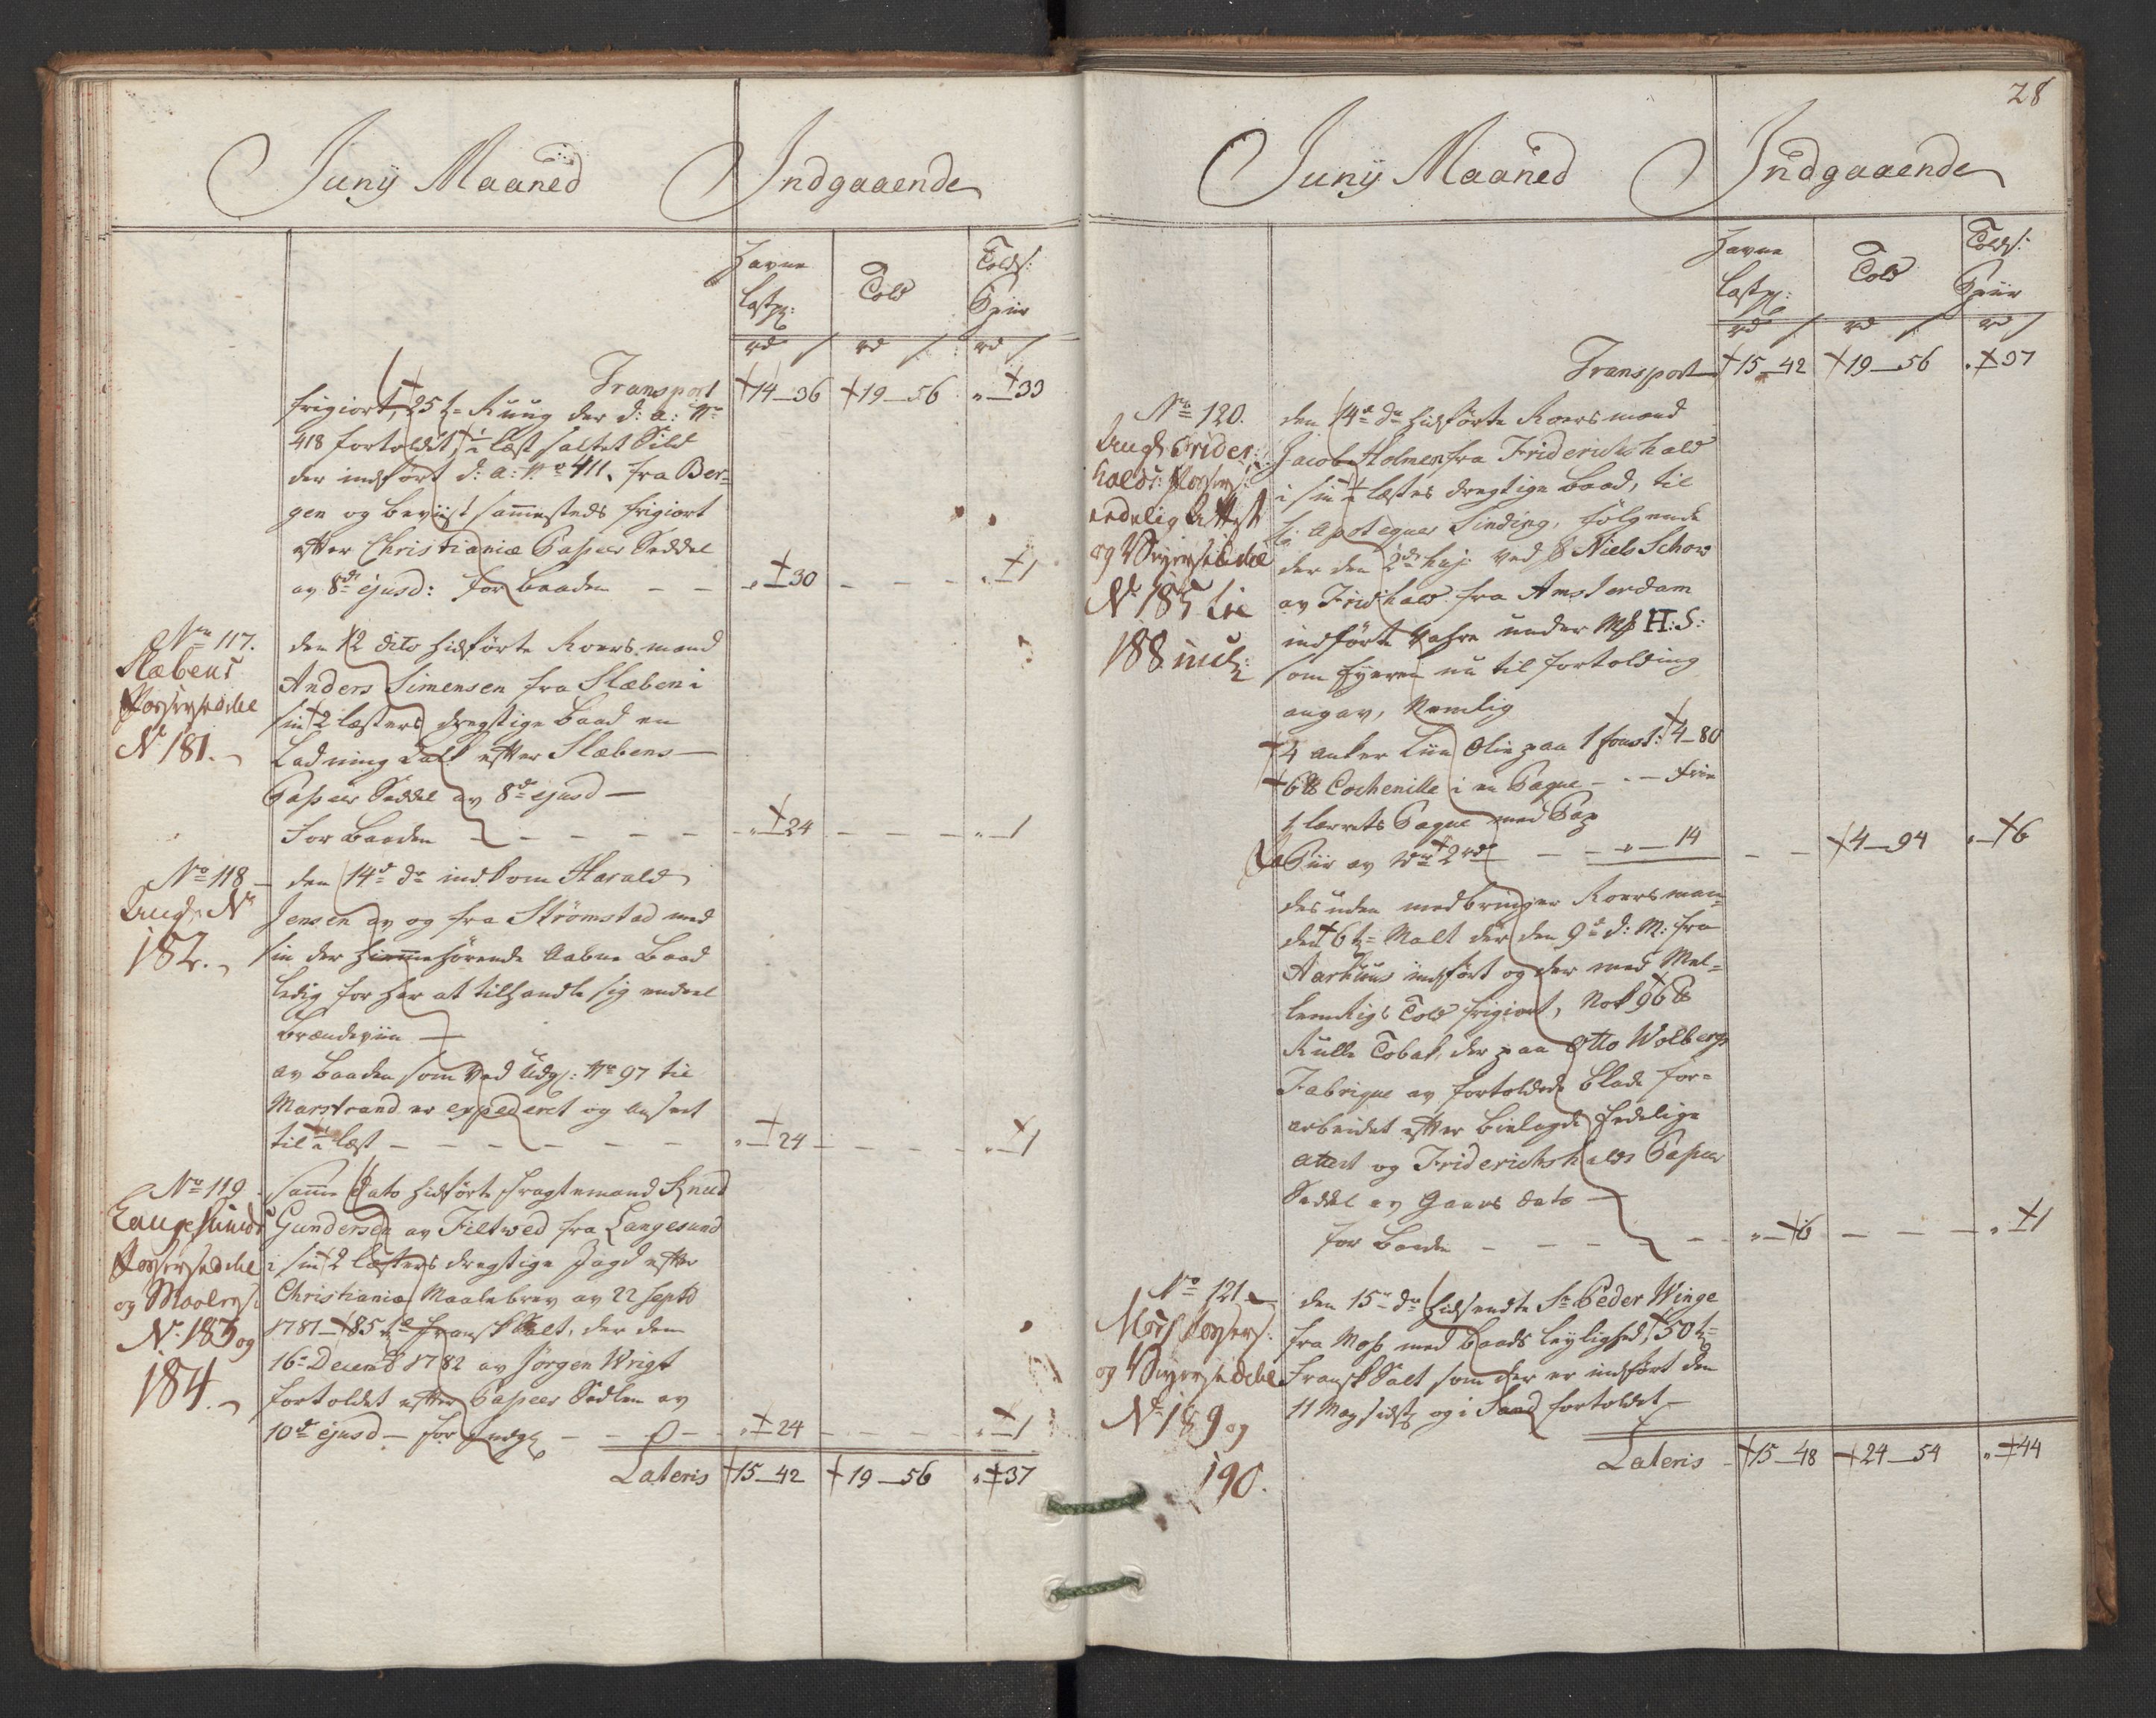 Juny Maaned Indgaaende
Havne
Lastp:
Told
Tolds:
Spiir
rd s rd s rd s
Transport 14_36 19_56 " _ 33
frigiort, 25 t Ruug der d: a: No
418 fortoldet, 1/2 læst saltet Sild
der indført d: a: No 411. fra Ber=
gen og beviist sammesteds frigiort
efter Christianiæ Passeer Seddel
av 8de ejusd: for Baaden _ _ " _ 30 _ _ _ " _ 1
No 117.
Slæbens
Passersedel
No 181.
den 12 dito hidførte Roersmand
Anders Simensen fra Slæben i
sin 2 læsters drægtige Baad en
Ladning Kalk efter Slæbens
Passeer Seddel av 8de ejusd _
for Baaden _ _ _ _ _ " _ 24 _ _ _ " _ 1
No 118 _
Angs No
182.
den 14de do indkom Harald
Jensen av og fra Strømstad med
sin der hiemmehørende aabne Baad
ledig for her at tilhandle sig endeel
Brændeviin _
av Baaden som ved Udg: No 97 til
Marstrand er expederet og ansat
til 1/2 læst _ _ _ _ _ _ " _ 24 _ _ _ " _ 1
No 119
Langesunds
Passersedel
og Maalers:
No 183 og
184.
samme Dato hidførte Fragtemand Knud
Gundersen av Filtwed fra Langesund
i sin 2 læsters drægtige Jagd efter
Christianiæ Maalebrev av 22 Septb
1781 _ 85 td Fransk Salt, der den
16 Decemb 1782 av Jørgen Wrigt
fortoldet efter Passeer Sedlen av
10de ejusd _ for _ _ " _ 24 _ _ _ " _ 1
Lateris 15_42 19_56 " _ 37
28
Juny Maaned Indgaaende
Havne
Lastp:
Told
Tolds:
Spiir
rd s rd s rd s
Transport 15_42 19_56 " _ 37
No 120.
Angs Frider:
halds: Passers:
endelig Attest
og Weyersedel
No 185 til
188 incl:
den 14de do hidførte Roersmand
Jacob Holmen fra Friderichshald
i sin 1/2 læstes drægtige Baad, til
Hr Apotequer Sinding, følgende
der den 2de huj: ved S Niels Schow
av Fridhald fra Amsterdam
indførte Vahre under Mk H:S:
som Eyeren nu til fortolding
angav, Nemlig
4 Anker Liin Olie paa 1 4_80
6 lb Cochenille i en Paque _ . _ frie
1 lærrets Paque med
av 2 rd _ _ " _ 14 _ _ 4_94 " _ 6
desuden medbringer Roersman=
den 6 t Malt der den 9de d: M: fra
Aarhuus indført og der med Mel=
lemRigs Told frigiort, Nok 96 lb
Rulle Tobak, der paa Otto Wolbergs
Fabrique av fortoldede Blade for=
arbeidet efter bielagde Eedelige
attest og Friderichshalds Passeer
Seddel av Gaars dato _
for Baaden _ _ _ _ _ " _ 6 _ _ _ " _ 1
No 121.
Moss Passers:
og Weyersedel
No 189 og
190.
den 15de do hidsendte Sr Peder Winge
fra Moss med Baads leylighed, 50 t
Fransk Salt som der er indført den
11 May sidst og i Sand fortoldet _
Lateris _ 15_48 24_54 " _ 44